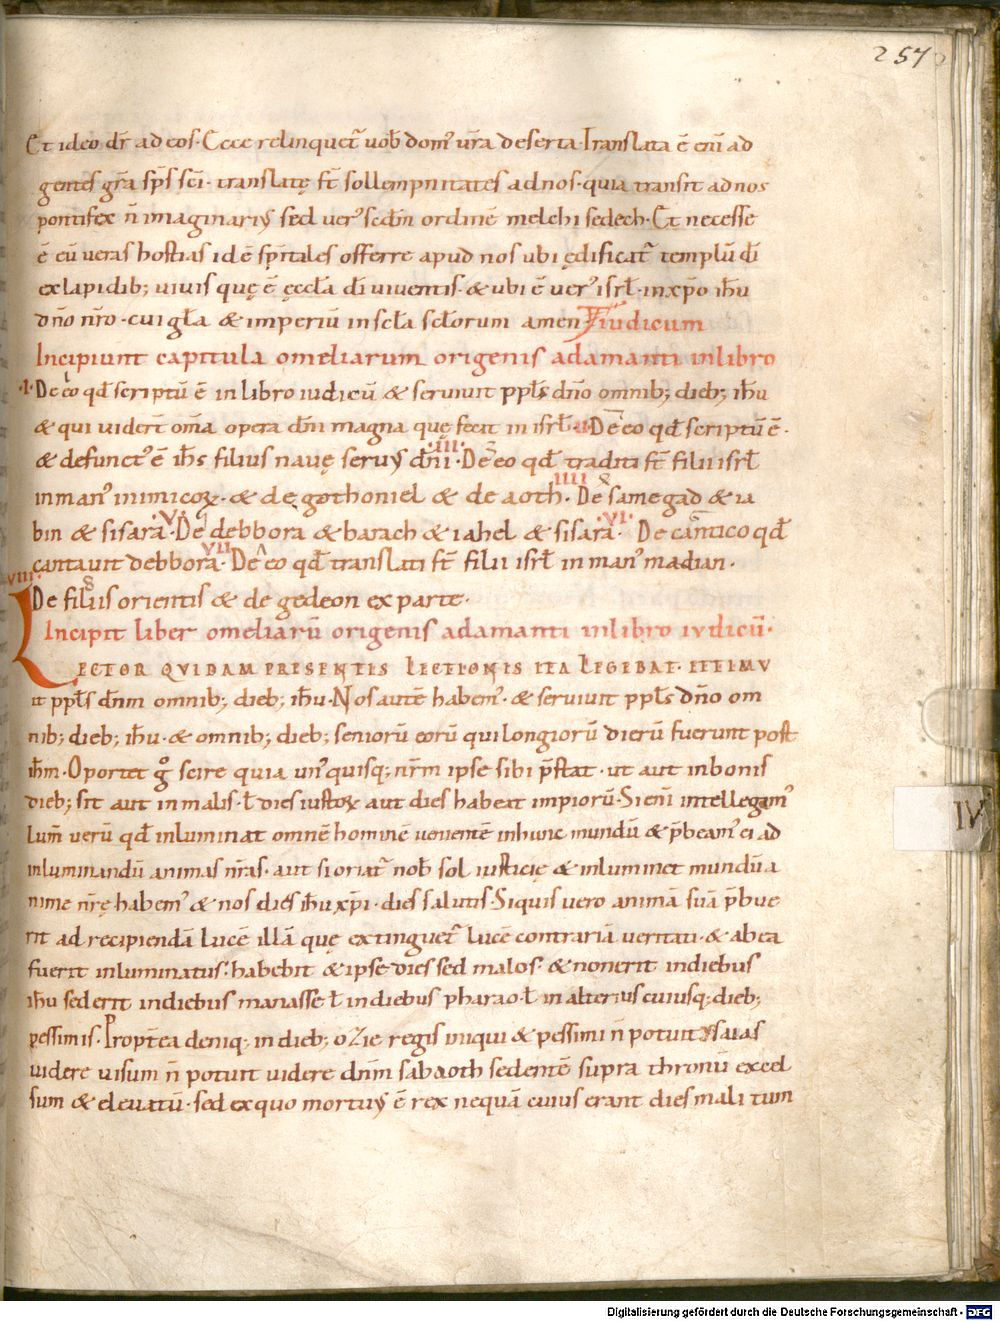 257
Et ideo dr̄ ad eos· Ecce relinquet᷑ uob̄ domꝰ ur̄a deserta· Translata ē eni͂ ad
gentes gr̄a sp̄s sc̄i· translatę st̄ sollempnitates ad nos· quia transit ad nos
pontifex n̄ imaginariꝰ sed uerꝰ sedm̄ ordinē melchisedech· Et necesse
ē eū ueras hostias id ē sp̄itales offerre apud nos ubi ędificat᷑ templū dī
ex lapidib; uiuis quę ē ęccl̄a dī uiuentis· & ubi ē uerꝰ isrl̄· in xp̄o ih̄u
dn̄o nr̄o· cui gl̄a & imperiū in scl̄a scl̄orum amen iudicum
Incipiunt capitula omeliarum origenis adamanti in libro
·I· De eo qd̄ scriptū ē in libro iudicū & seruiuit ppl̄s dn̄o omnib; dieb; ih̄u
& qui uider̄t om̄a opera dn̄i magna quę fecit in isrl̄· II De eo qd̄ scriptū ē·
& defunctꝰ ē ih̄s filius nauę seruꝰ dn̄i· ·III· De eo qd̄ traditi st̄ filii isrl̄
in manꝰ inimicoꝝ· & de gothoniel & de aoth· IIII De samegad & ia
bin & sisara· ·V· De debbora & barach & iahel & sisara· ·VI· De cantico qd̄
cantauit debbora· VII De eo qd̄ translati st̄ filii isrl̄ in manꝰ madian·
VIII· De filiis orientis & de gedeon ex parte·
Incipit liber omeliarū origenis adamanti in libro iudicū·
LECTOR QUIDAM PRESENTIS LECTIONIS ITA LEGEBAT· ET TIMU
it ppl̄s dn̄m omnib; dieb; ih̄u· Nos autē habemꝰ· & seruiuit ppl̄s dn̄o om
nib; dieb; ih̄u· & omnib; dieb; seniorū eorū qui longiorū dierū fuerunt post
ih̄m· Oportet gͦ scire quia unꝰquisq; nr̄m ipse sibi p̄stat· ut aut in bonis
dieb; sit aut in malis· ł dies iustoꝝ aut dies habeat impiorū· Si eni͂ intellegamꝰ
lum̄ uerū qd̄ inluminat omnē hominē uenientē in hunc mundū & p̄beamꝰ ei ad
inluminandū animas nr̄as· aut si oriat᷑ nob̄ sol iusticię & inluminet mundū a
nime nr̄ę· habemꝰ & nos dies ih̄u xp̄i· dies salutis· Siquis uero animā suā p̄bue
rit ad recipiendā lucē illā quę extinguet᷑ lucē contrariā ueritati· & ab ea
fuerit inluminatus· habebit & ipse dies sed malos· & non erit in diebus
ih̄u sed erit in diebus manasse ł in diebus pharao· ł in alterius cuiusq; dieb;
pessimis· Propt̄ea deniq; in dieb; ozie regis iniqui & pessimi n̄ potuit ysaias
uidere uisum n̄ potuit uidere dn̄m sabaoth sedentē supra thronū excel
sum & eleuatū· sed ex quo mortuꝰ ē rex nequā cuius erant dies mali tum
IV
Digitalisierung gefördert durch die Deutsche Forschungsgemeinschaft - DFG